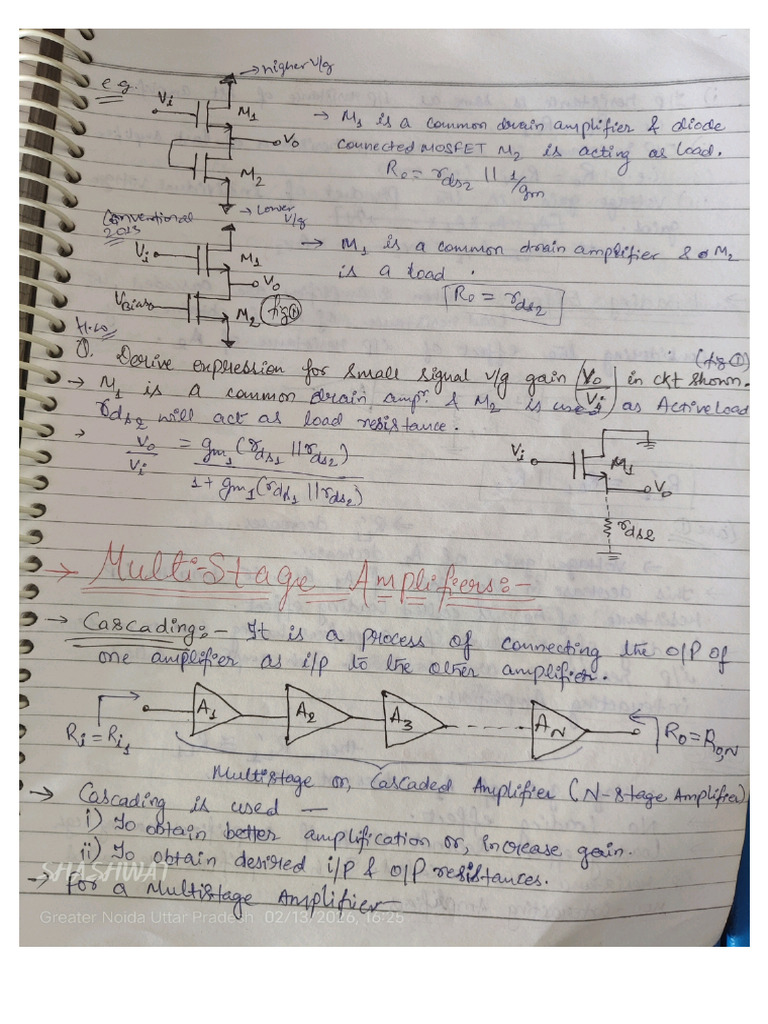 e.g.
→ higher v/g
Vi
M1
Vo
M2
→ M1 is a common drain amplifier & diode
connected MOSFET M2 is acting as load.
Ro = rds2 || 1/gm
→ Lower v/g
Conventional
2013
Vi
M1
Vo
VBias
M2
fig ①
→ M1 is a common drain amplifier & M2
is a load.
Ro = rds2
H.W
Q. Derive expression for small signal v/g gain (Vo/Vi) in ckt shown. (fig ①)
→ M1 is a common drain ampr. & M2 is used as Active load
rds2 will act as load resistance.
→ Vo/Vi = gm1(rds1 || rds2) / 1 + gm1(rds1 || rds2)
Vi
M1
Vo
rds2
→ Multi-Stage Amplifiers:-
→ Cascading:- It is a process of connecting the o/p of
one amplifier as i/p to the other amplifier.
Ri = Ri1
A1
A2
A3
AN
Ro = Ro,N
Multistage or, Cascaded Amplifier (N-stage Amplifier)
→ Cascading is used —
i) To obtain better amplification or, increase gain.
ii) To obtain desired i/p & o/p resistances.
SHASHWAT
→ For a Multistage Amplifier—
Greater Noida Uttar Pradesh 02/13/2026, 16:25